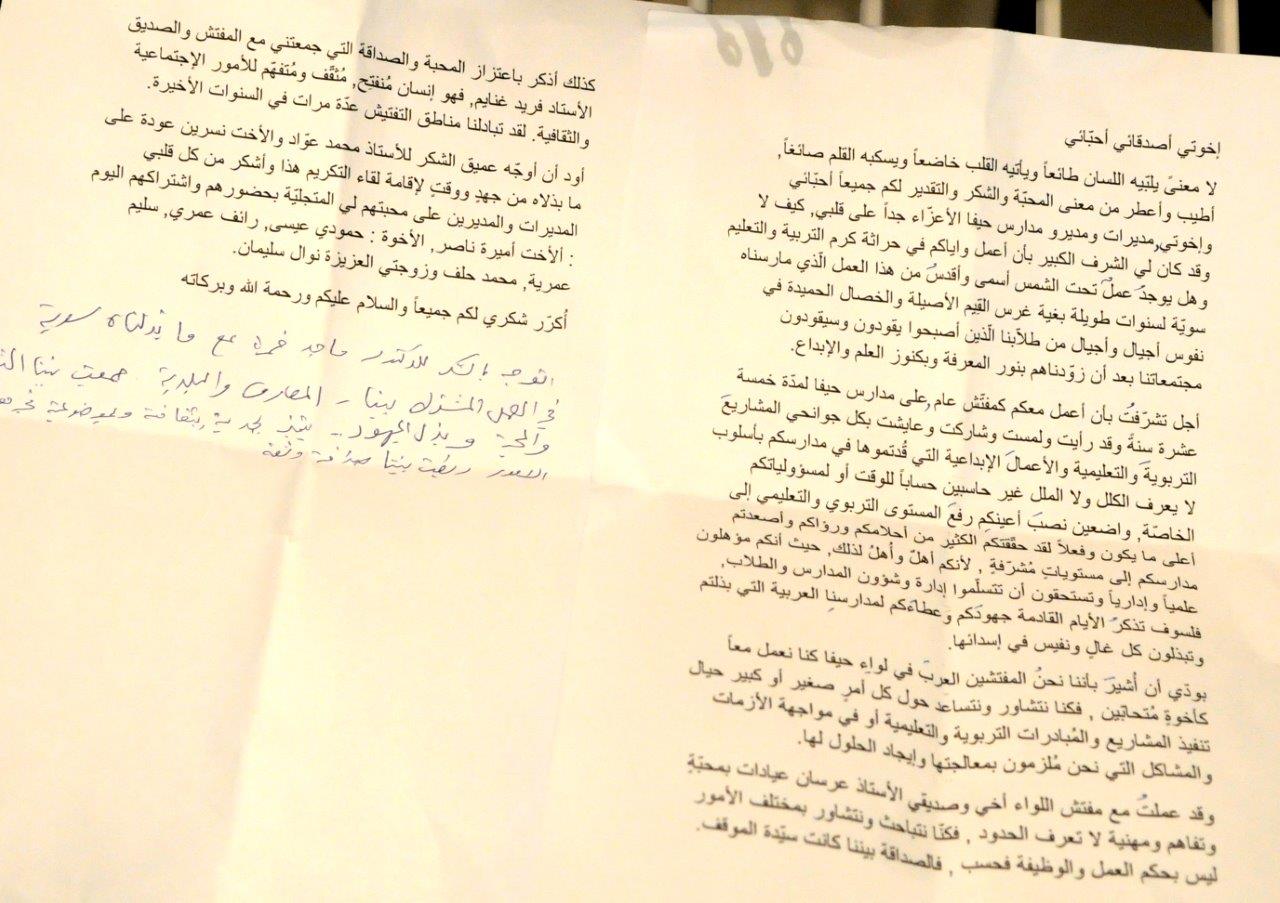 إخوتي أصدقائي أحبّائي
لا معنىً يلبّيه اللسان طائعاً ويأتيه القلب خاضعاً ويسكبه القلم صائغاً,
أطيب وأعطر من معنى المحبّة والشكر والتقدير لكم جميعاً أحبّائي
وإخوتي,مديرات ومديرو مدارس حيفا الأعزّاء جداً على قلبي, كيف لا
وقد كان لي الشرف الكبير بأن أعمل واياكم في حراثة كرم التربية والتعليم
وهل يوجدُ عملٌ تحت الشمس أسمى وأقدسُ من هذا العمل الّذي مارسناه
سويّة لسنوات طويلة بغية غرس القيم الأصيلة والخصال الحميدة في
نفوس أجيال وأجيال من طلّابنا الّذين أصبحوا يقودون وسيقودون
مجتمعاتنا بعد أن زوّدناهم بنور المعرفة وبكنوز العلم والإبداع.
أجل تشرّفتُ بأن أعمل معكم كمفتّش عام,على مدارس حيفا لمدّة خمسة
عشرة سنةً وقد رأيت ولمست وشاركت وعايشت بكل جوانحي المشاريعَ
التربويةَ والتعليمية والأعمالَ الإبداعية التي قُدتموها في مدارسكم بأسلوب
لا يعرف الكلل ولا الملل غير حاسبين حساباً للوقت أو لمسؤولياتكم
الخاصّة, واضعين نصبَ أعينكم رفعَ المستوى التربوي والتعليمي إلى
أعلى ما يكون وفعلاً لقد حقّقتكم الكثير من أحلامكم ورؤاكم وأصعدتم
مدارسكم إلى مستوياتٍ مُشرّفةٍ , لأنكم أهلٌ وأهلُ لذلك, حيث أنكم مؤهلون
علمياً وإدارياً وتستحقون أن تتسلّموا إدارة وشؤون المدارس والطلاب,
فلسوف تذكرُ الأيام القادمة جهودَكم وعطاءَكم لمدارسنا العربية التي بذلتم
وتبذلون كل غالٍ ونفيس في إسدائها.
بودّي أن أُشيرَ بأننا نحنُ المفتشين العربَ في لواء حيفا كنا نعمل معاً
كأخوةٍ مُتحابّين , فكنا نتشاور ونتساعد حول كل أمرٍ صغير أو كبير حيال
تنفيذ المشاريع والمُبادرات التربوية والتعليمية أو في مواجهة الأزمات
والمشاكل التي نحن مُلزمون بمعالجتها وإيجاد الحلول لها.
وقد عملتُ مع مفتش اللواء أخي وصديقي الأستاذ عرسان عيادات بمحبّةٍ
وتفاهم ومهنية لا تعرف الحدود , فكنّا نتباحث ونتشاور بمختلف الأمور
ليس بحكم العمل والوظيفة فحسب , فالصداقة بيننا كانت سيّدة الموقف.
كذلك أذكر باعتزاز المحبة والصداقة التي جمعتني مع المفتش والصديق
الأستاد فريد غنايم, فهو إنسان مُنفتِح, مُثقّف ومُتفهّم للأمور الإجتماعية
والثقافية. لقد تبادلنا مناطق التفتيش عدّة مرات في السنوات الأخيرة.
أود أن أوجّه عميق الشكر للأستاذ محمد عوّاد والأخت نسرين عودة على
ما بذلاه من جهدٍ ووقتٍ لإقامة لقاء التكريم هذا وأشكر من كل قلبي
المديرات والمديرين على محبتهم لي المتجليّة بحضورهم واشتراكهم اليوم
: ألأخت أميرة ناصر, الأخوة : حمودي عيسى, رائف عمري, سليم
عمرية, محمد حلف وزوجتي العزيزة نوال سليمان.
أُكرّر شكري لكم جميعاً والسلام عليكم ورحمة الله وبركاته
اتوجه بالشكر للدكتور ماجد خمرة مع ما بذلناه سوية
في العمل المشترك بيننا - المعارف والبلدية. جمعت بيننا
والمحبة وبذل المجهود.. يتميز بجدية بثقافة وبموضوعية
بيننا صداقة وثقة